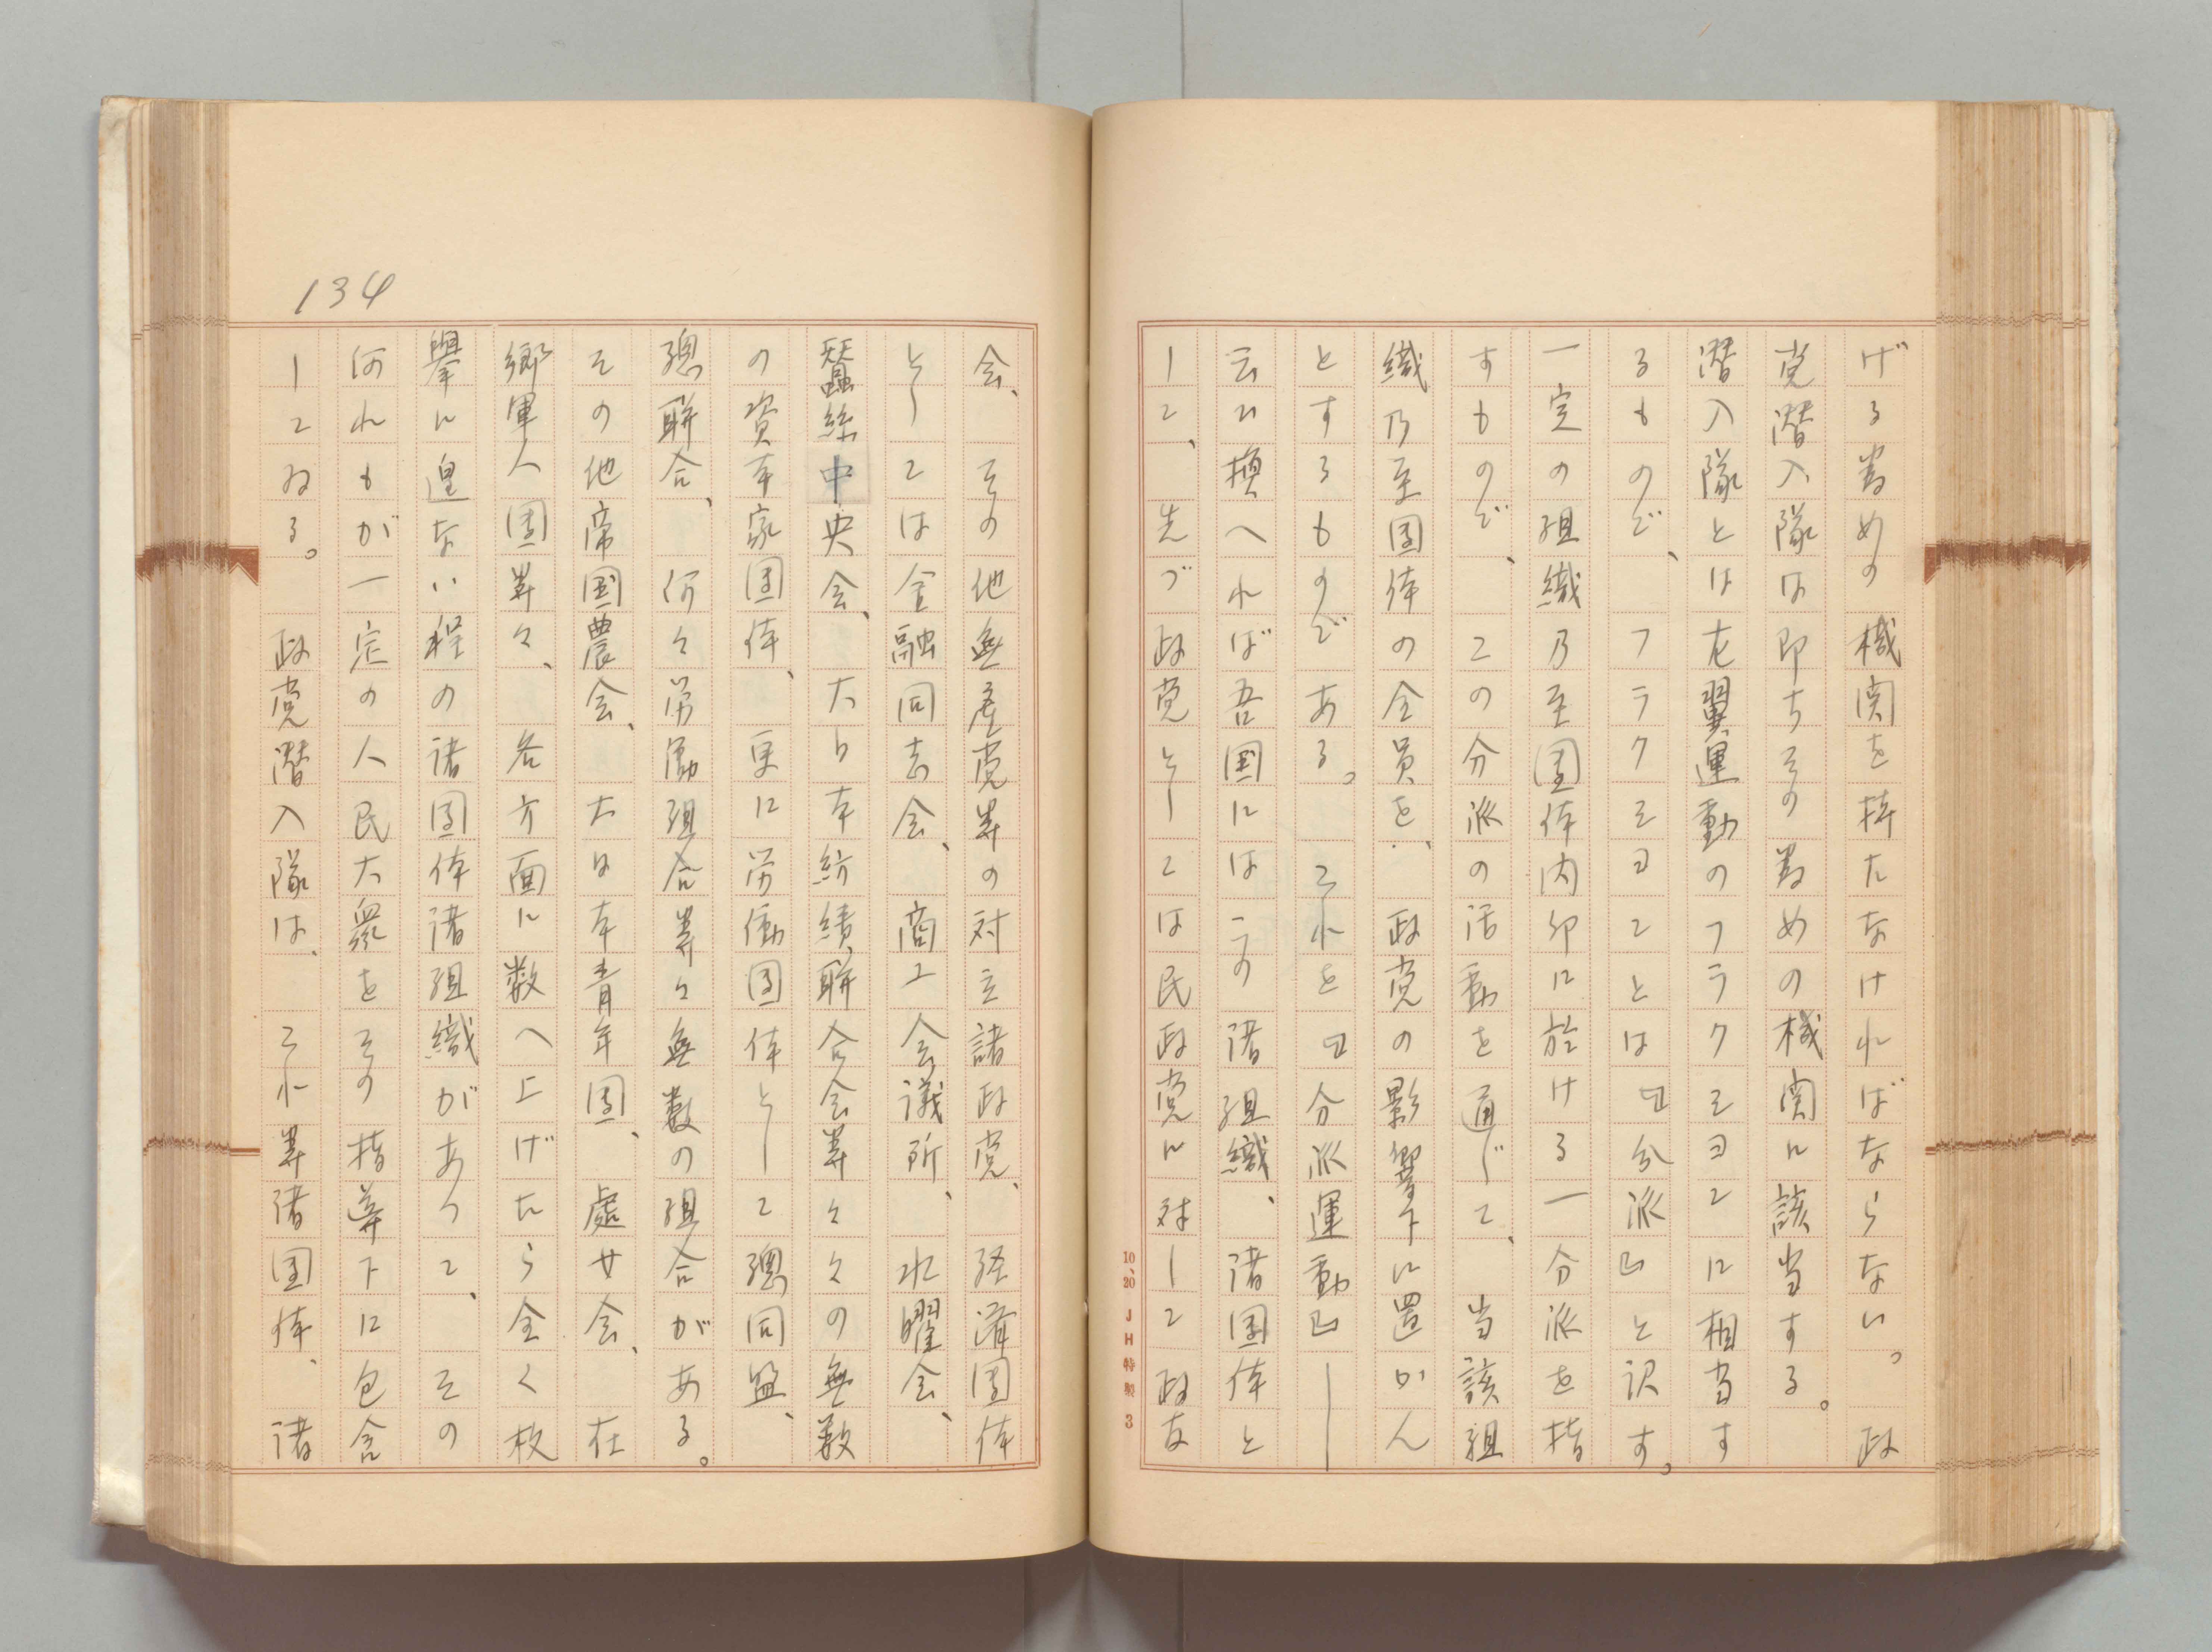 げる為めの機関を持たなければならない。政
党潜入隊は即ちその為めの機関に該当する。
潜入隊とは左翼運動のフラクミヨンに相当す
るもので、フラクミヨンとは『分派』と訳す。
一定の組織乃至団体内部に於ける一分派を指
すもので、この分派の活動を通じて、当該組
織乃至団体の全員を、政党の影響下に置かん
とするものである。これを『分派運動』―
云ひ換へれば吾国にはこの諸組織、諸団体と
して、先づ政党としては民政党に対して政友
会、その他無産党等の対立諸政党、経済団体
としては金融同志会、商工会議所、水曜会、
蚕絲中央会、大日本紡績聯合会等々々の無数
の資本家団体、更に労働団体として総同盟、
総聯合、何々労働組合等々無数の組合がある。
その他帝国農会、大日本青年団、処女会、在
郷軍人団等々、各方面に数へ上げたら全く枚
挙に遑ない程の諸団体諸組織があつて、その
何れもが一定の人民大衆をその指導下に包含
してゐる。政党潜入隊は、これ等諸団体、諸
134
10、20 JH特製 3